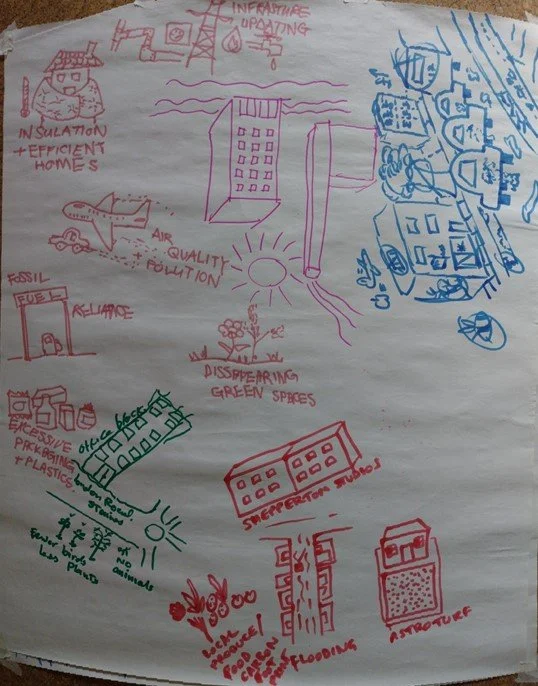 INFRASTURE
UPDATING
INSULATION
+ EFFICIENT
HOMES
AIR
QUALITY
+ POLLUTION
FOSSIL
FUEL
RELIANCE
DISSAPEARING
GREEN SPACES
EXCESSIVE
PACKAGING
+ PLASTICS
office block
London Road.
Staines
fewer birds
less plants
No
animals
SHEPPERTON STUDIOS
LOCAL
PRODUCE /
FOOD
CARBON
FOOT
PRINT
FLOODING
ASTROTURF